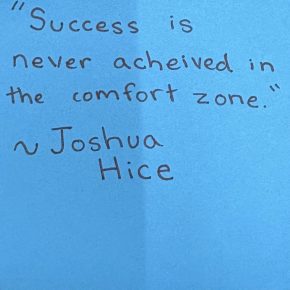 "Success is
never acheived in
the comfort zone."
~ Joshua
Hice